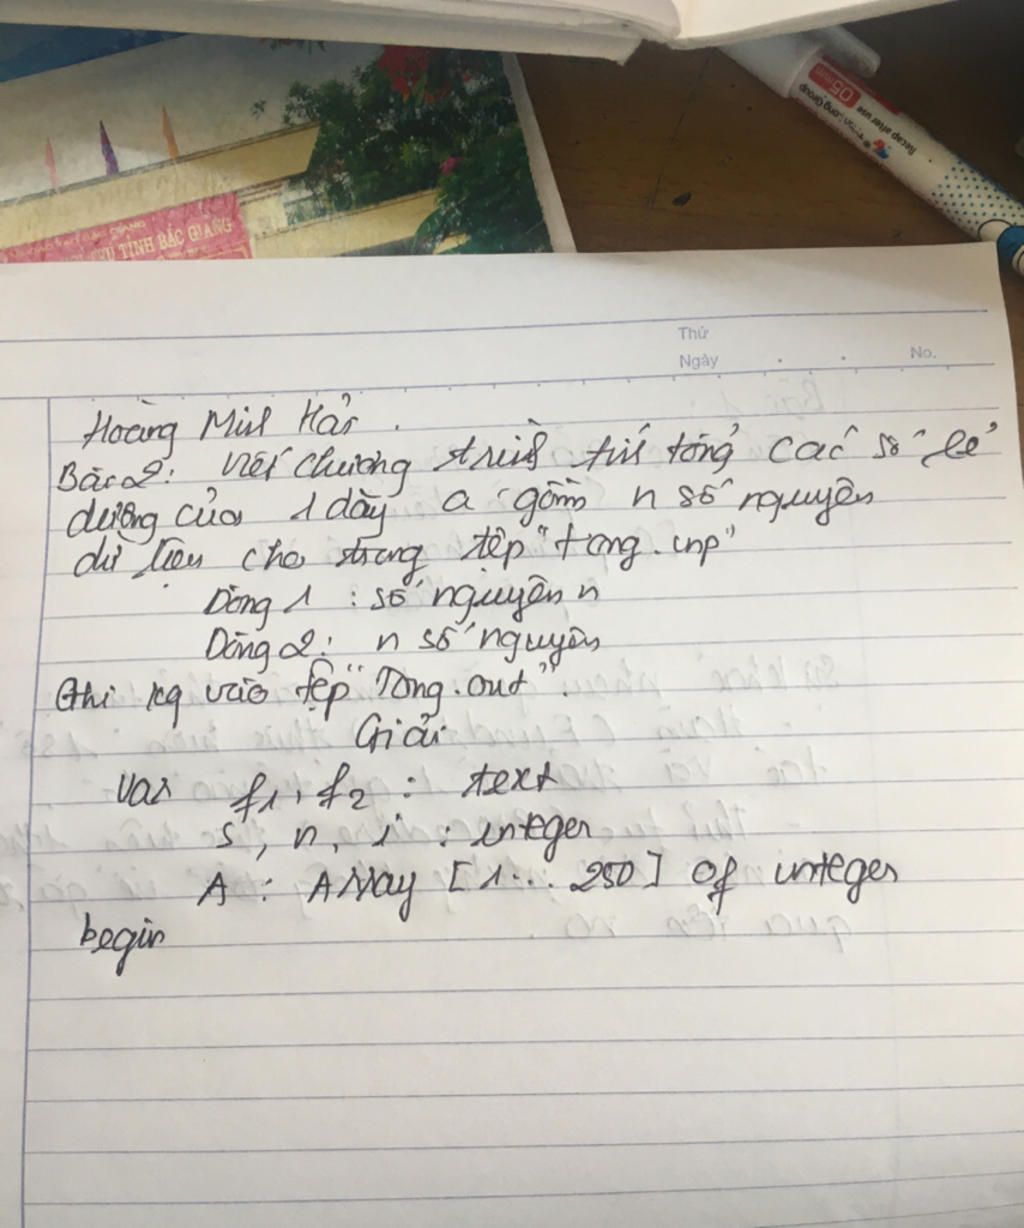 TỈNH BẮC GIANG
05
Recap after use
Long Group
Thứ
Ngày
No.
Hoàng Minh Hải.
Bài 2: Viết chương trình tính tổng các số lẻ
dương của 1 dãy a gồm n số nguyên
dữ liệu cho trong tệp "tong.inp"
Dòng 1 : số nguyên n
Dòng 2: n số nguyên
Ghi kq vào tệp "Tong.out".
Giải
Var f1, f2 : text
S, n, i : integer
A : Array [1... 250] of integer
begin